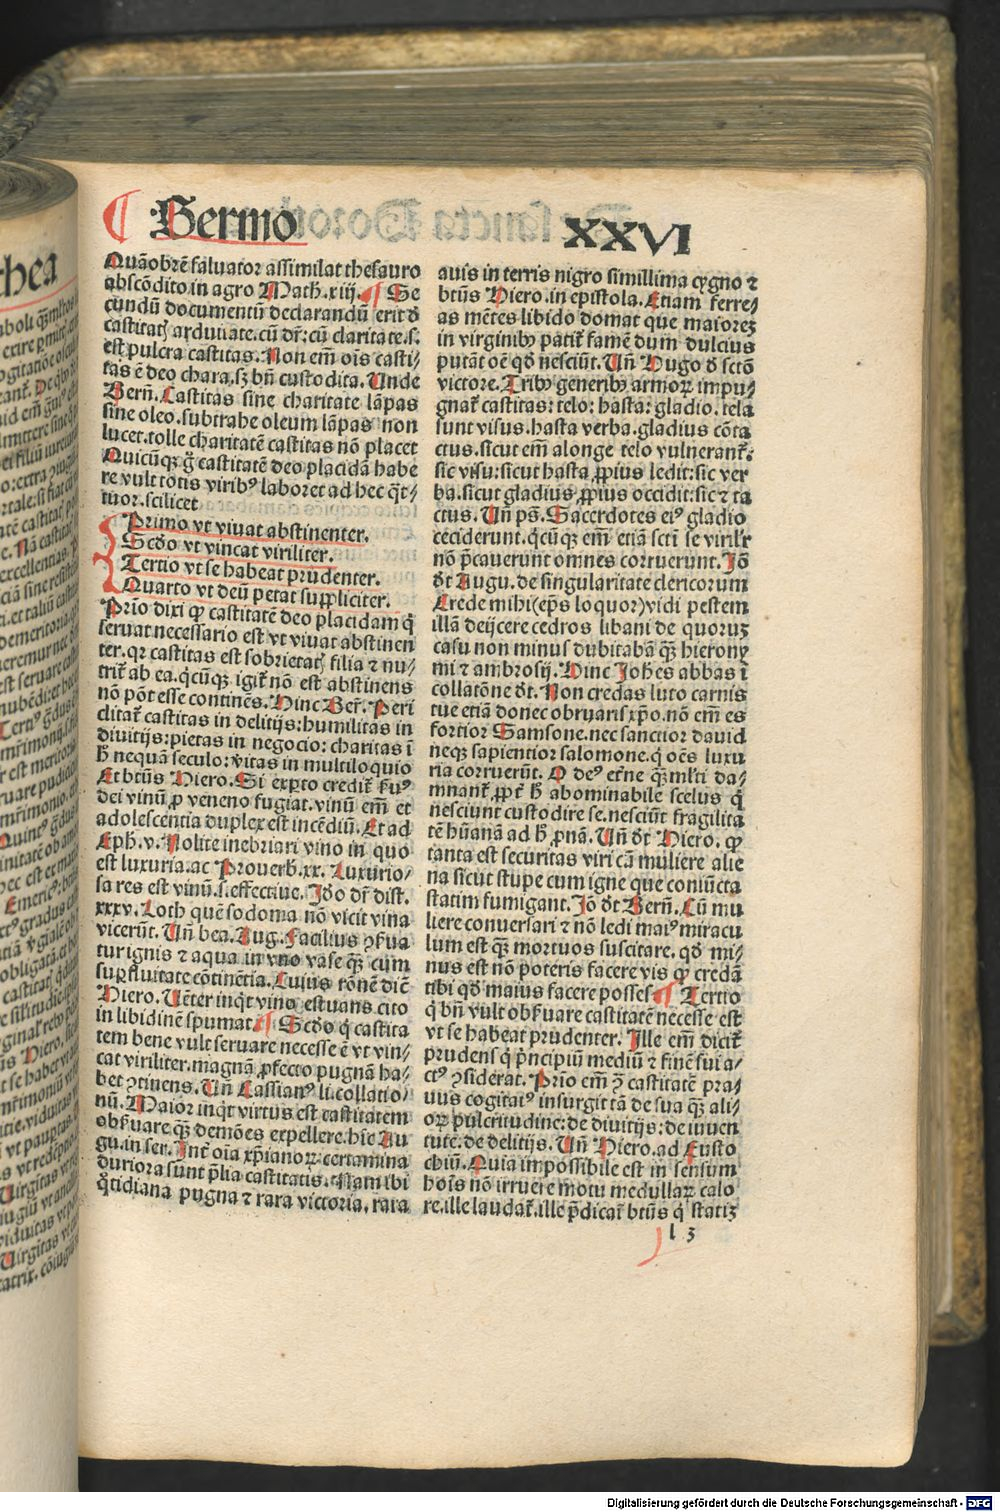 Sermo XXVI
Quãobrẽ saluator assimilat thesauro
abscõdito in agro Math.xiij. ¶ Se
cundũ documentũ declarandũ erit ð
castitatꝭ arduitate.cũ dr̃:cũ claritate.s.
est pulcra castitas. Non em̃ oĩs casti/
tas ẽ deo chara.sꝫ bñ custodita. Unde
Berñ. Castitas sine charitate lãpas
sine oleo.subtrahe oleum lãpas non
lucet.tolle charitatẽ castitas nõ placet
Quicũqꝫ g̃ castitatẽ deo placidã habe
re vult totis viribꝰ laboret ad hec q̃t/
tuor.scilicet
Primo vt viuat abstinenter.
Scðo vt vincat viriliter.
Tertio vt se habeat prudenter.
Quarto vt deũ petat suppliciter.
Prĩo dixi ꝙ castitatẽ deo placidam q̇
seruat necessario est vt viuat abstinen
ter.qꝛ castitas est sobrietatꝭ filia ⁊ nu/
trit̃ ab ea.q̇cũqꝫ igit̃ nõ est abstinens
nõ põt esse continẽs. Hinc Ber̃. Peri
clitat̃ castitas in delitijs:humilitas in
diuitijs:pietas in negocio:charitas ĩ
h̃ nequã seculo:vitas in multiloquio
Et btũs Hiero. Si expto credit̃ ẜuꝰ
dei vinũ ꝓ veneno fugiat.vinũ em̃ et
adolescentia duplex est incẽdiũ. Et ad
Eph.v. Nolite inebriari vino in quo
est luxuria.ac Prouerb.xx. Luxurio/
sa res est vinũ.s.effectiue. Iðo dr̃ dist.
xxxv. Loth quẽ sodoma nõ vicit vina
vicerũt. Uñ bea. Aug. Facilius ꝯẜua
tur ignis ⁊ aqua in vno vase q̃ꝫ cum
suꝑfluitate cõtinẽtia. Cuius rõnẽ dic̃
Hiero. Uẽter inq̇t vino estuans cito
in libidinẽ spumat ¶ Scðo q̇ castita
tem bene vult seruare necesse ẽ vt vin/
cat viriliter.magnã ꝓfecto pugnã ha/
bet ꝯtinens. Uñ Cassianꝰ li.collatio/
nũ. Maior inq̇t virtus est castitatem
obẜuare q̃ꝫ demões expellere.hĩc Au
gu.in ser. Int̃ oĩa xp̃ianoꝝ certamina
duriora sunt p̃lia castitatis. Nam ibi
q̃tidiana pugna ⁊ rara victoria, rara
auis in terris nigro simillima cygno ⁊
btũs Hiero.in epistola. Etiam ferre/
as mẽtes libido domat que maiorẽ
in virginibꝰ patit̃ famẽ dum dulcius
putãt oẽ qð nesciũt. Uñ Hugo ð sctõ
victore. Tribꝰ generibꝰ armoꝝ impu/
gnat̃ castitas:telo:hasta:gladio.tela
sunt visus.hasta verba.gladius cõta
ctus.sicut em̃ a longe telo vulnerant̃:
sic visu:sicut hasta ꝓpius ledit:sic ver
ba.sicut gladius ꝓpius occidit:sic ⁊ ta
ctus. Uñ ps̃. Sacerdotes eiꝰ gladio
ceciderunt.q̇cũqꝫ em̃ etiã scti se virilr̃
nõ p̃cauerunt omnes corruerunt. Iõ
ðt Augu.de singularitate clericorum
Crede mihi(ep̃s loquor)vidi pestem
illã deijcere cedros libani de quorum
casu non minus dubitabã q̃ꝫ hierony
mi ⁊ ambrosij. Hinc Iohẽs abbas ĩ
collatõne ðt. Non credas luto carnis
tue etiã donec obruaris xp̃o.nõ em̃ es
fortior Samsone.nec sanctior dauid
neqꝫ sapientior salomone.q̇ oẽs luxu
ria corruerũt. O deꝰ et̃ne q̃ꝫ ml̃ti da/
mnant̃ ꝓpt̃ h̃ abominabile scelus q̇
nesciunt custodire se.nesciũt fragilita
tẽ hũanã ad h̃ ꝓnã. Uñ ðt Hiero. ꝙ
tanta est securitas viri cã muliere alie
na sicut stupe cum igne que coniũcta
statim fumigant. Iõ ðt Berñ. Cũ mu
liere conuersari ⁊ nõ ledi maiꝰ miracu
lum est q̃ꝫ mortuos suscitare. qð mi/
nus est nõ poteris facere vis ꝙ credã
tibi qð maius facere posses ¶ Tertio
q̇ bñ vult obẜuare castitatẽ necesse est
vt se habeat prudenter. Ille em̃ dicit̃
prudens q̇ p̃ncipiũ mediũ ⁊ finẽ sui a/
ctꝰ ꝯsiderat. Prĩo em̃ ꝯ̃ castitatẽ pra/
uus cogitatꝰ insurgit tã de sua q̃ꝫ ali/
oꝝ pulcritudine:de diuitijs:de iuuen
tute.de delitijs. Uñ Hiero.ad Eusto
chiũ. Quia impossibile est in sensum
hoĩs nõ irruere motũ medullaꝝ calo
re.ille laudat̃.ille p̃dicat̃ btũs q̇ statĩ
l 3
Digitalisierung gefördert durch die Deutsche Forschungsgemeinschaft - DFG